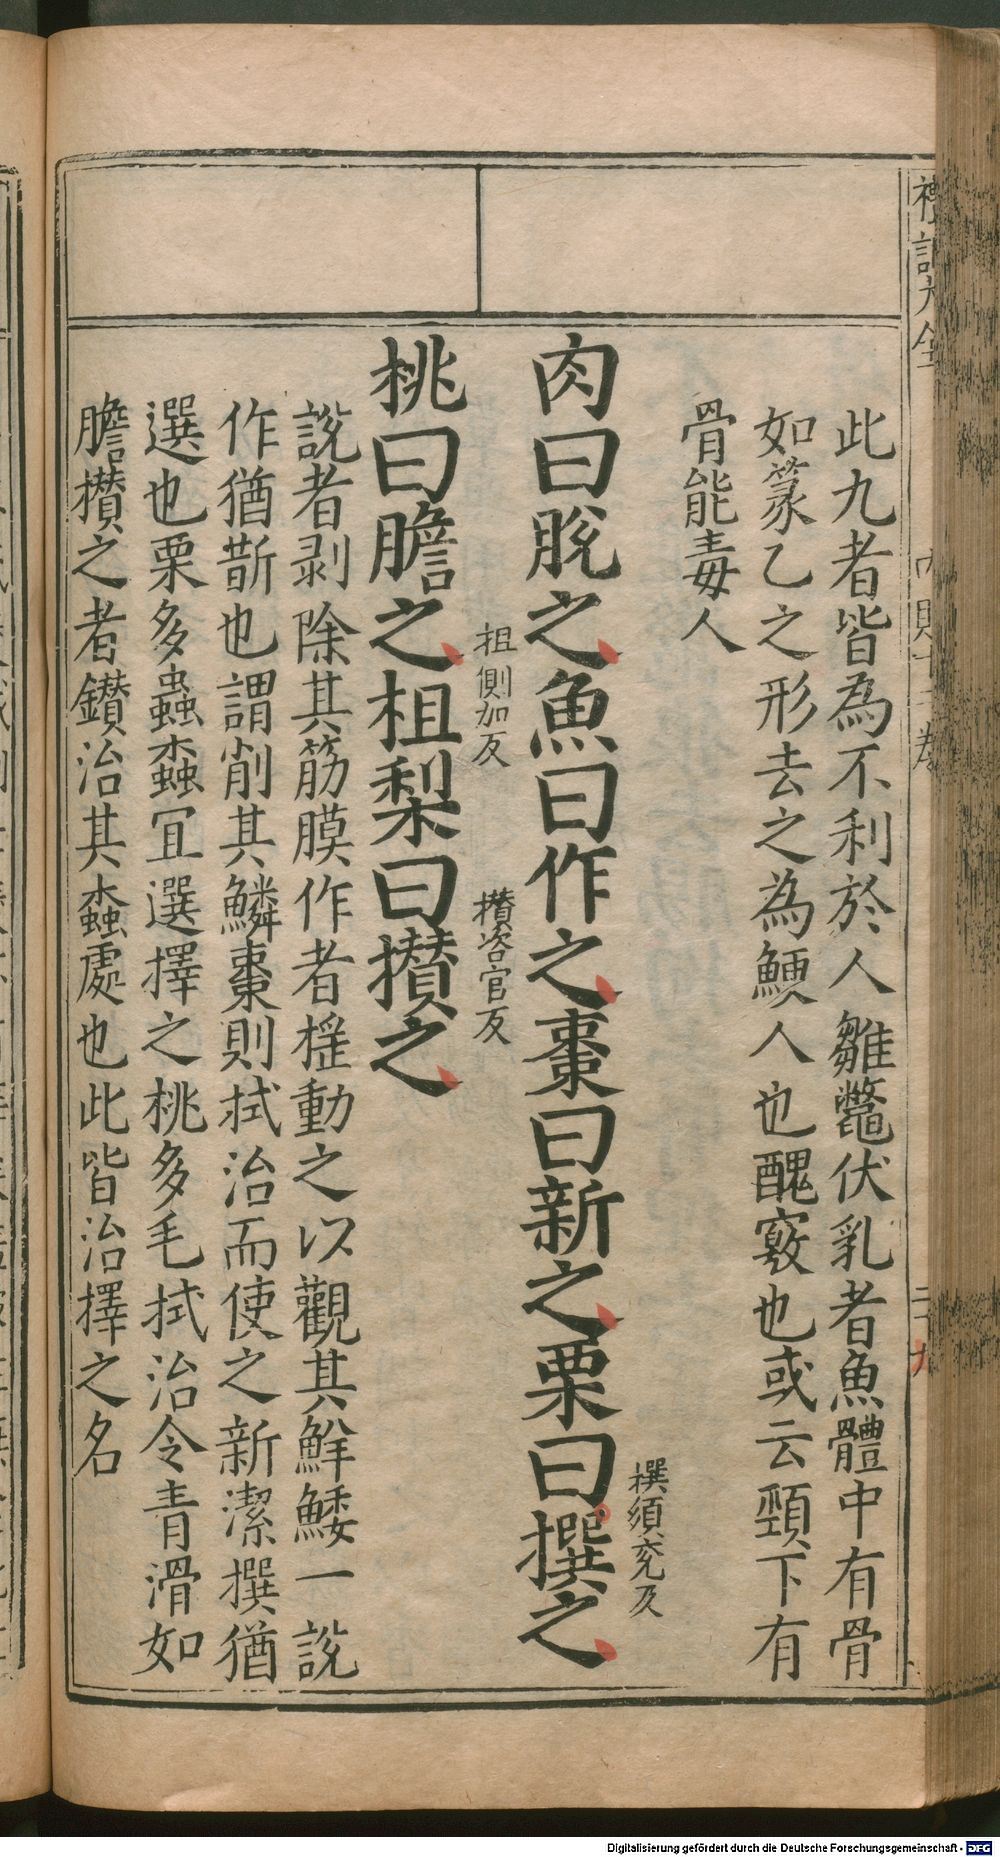 禮記大全
內則十二卷
二十九
此九者皆為不利於人雛鼈伏乳者魚體中有骨
如篆乙之形去之為鯁人也醜竅也或云頸下有
骨能毒人
撰須兖反
肉曰脫之魚曰作之棗曰新之栗曰撰之
柤側加反
攢咨官反
桃曰膽之柤梨曰攢之
說者剥除其筋膜作者搖動之以觀其鮮餧一說
作猶斮也謂削其鱗棗則拭治而使之新潔撰猶
選也栗多蟲螙宜選擇之桃多毛拭治令青滑如
膽攢之者鑽治其螙處也此皆治擇之名
Digitalisierung gefördert durch die Deutsche Forschungsgemeinschaft - DFG